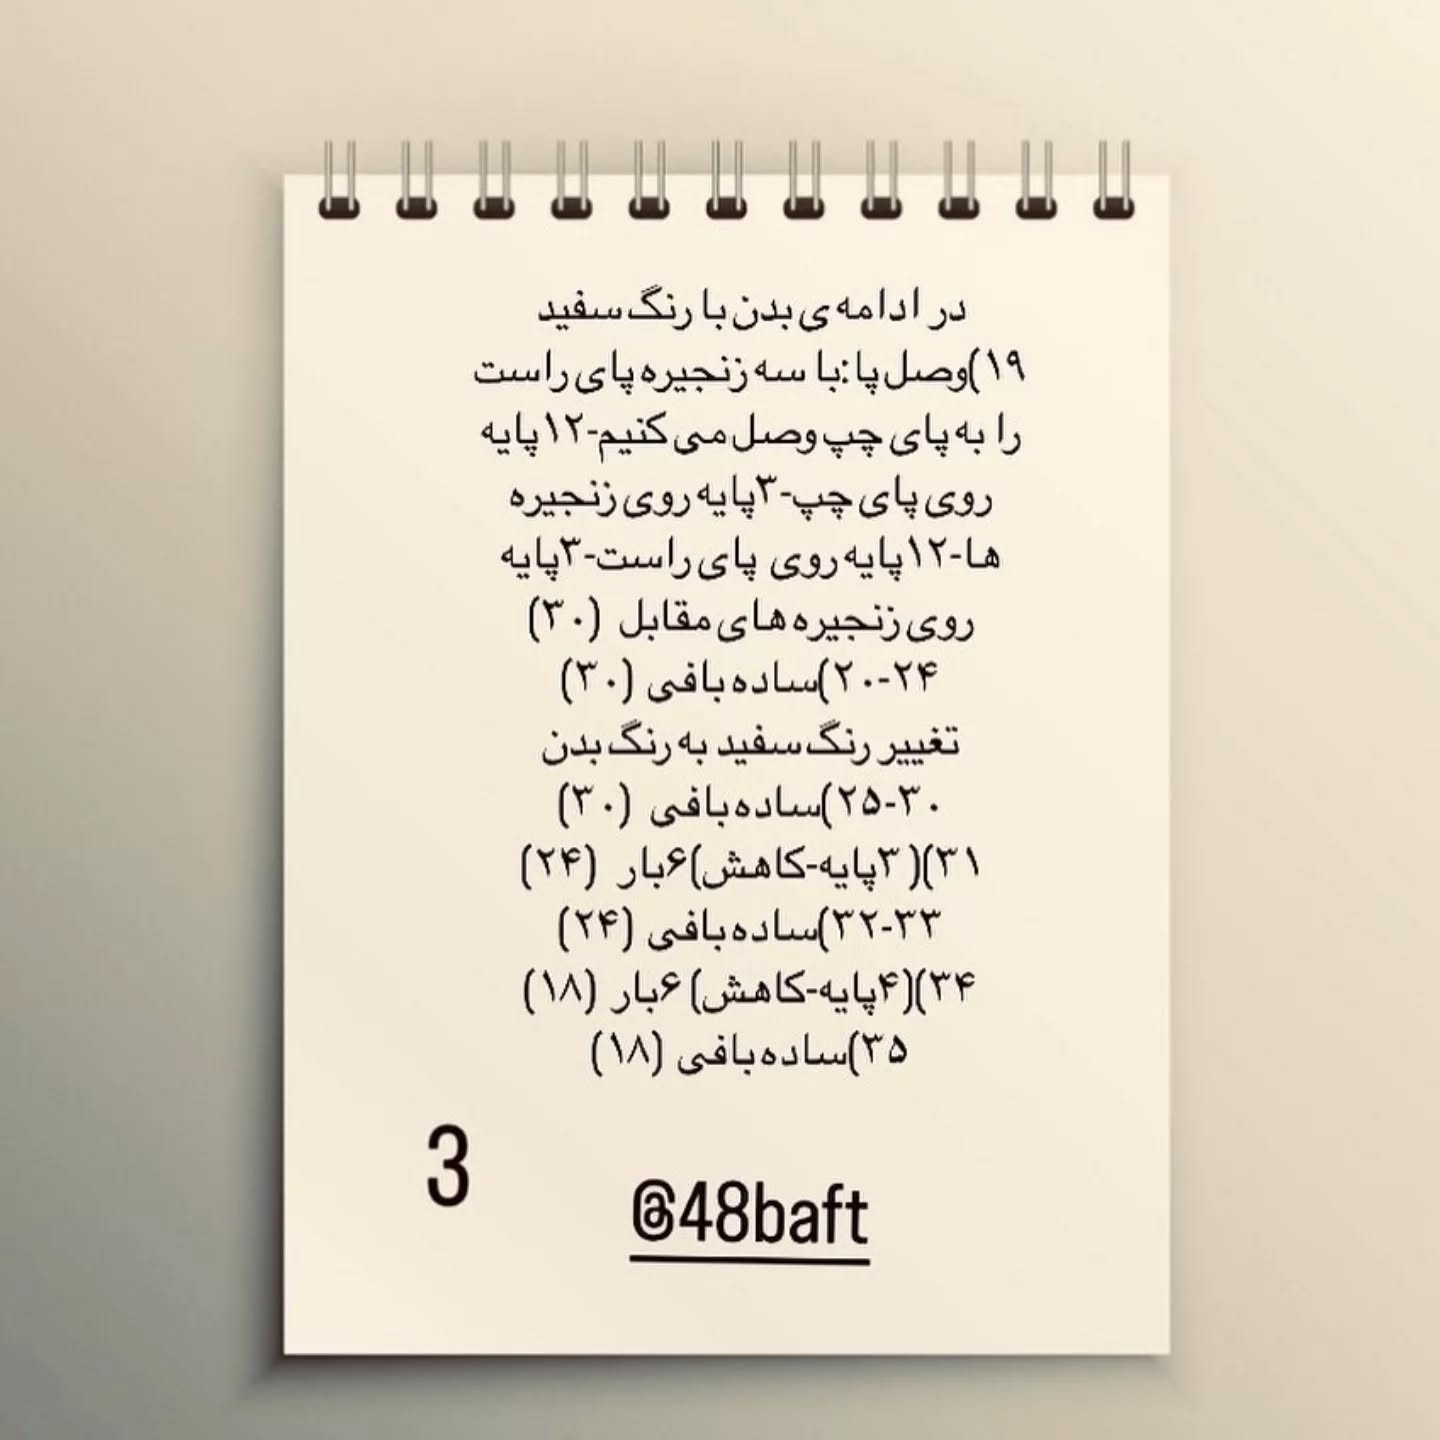 در ادامه ی بدن با رنگ سفید
۱۹)وصل پا:با سه زنجیره پای راست
را به پای چپ وصل می کنیم-۱۲پایه
روی پای چپ-۳پایه روی زنجیره
ها-۱۲پایه روی پای راست-۳پایه
روی زنجیره های مقابل (۳۰)
۲۰-۲۴)ساده بافی (۳۰)
تغییر رنگ سفید به رنگ بدن
۲۵-۳۰)ساده بافی (۳۰)
۳۱)(۳پایه-کاهش)۶بار (۲۴)
۳۲-۳۳)ساده بافی (۲۴)
۳۴)(۴پایه-کاهش)۶بار (۱۸)
۳۵)ساده بافی (۱۸)
3
@48baft